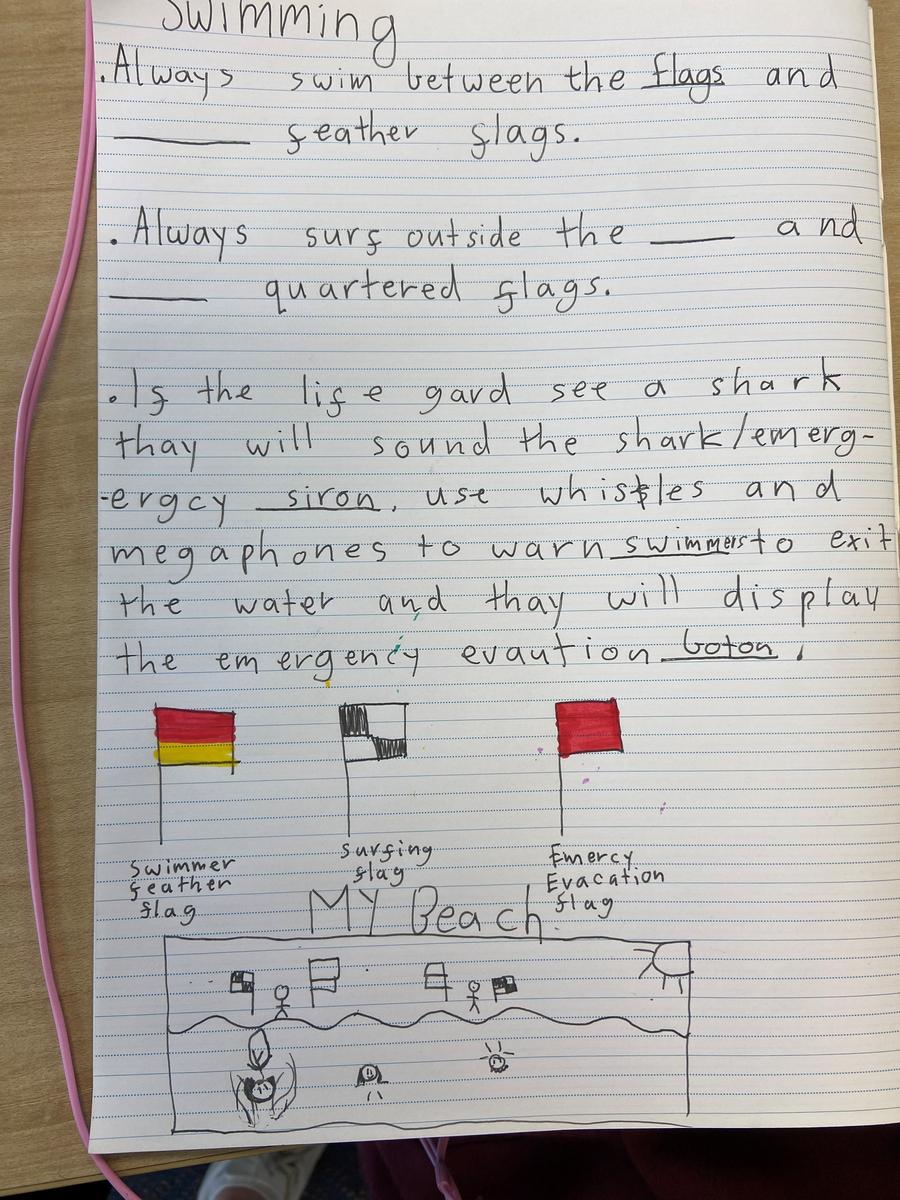 Swimming
.Always swim between the flags and
____ feather flags.
.Always surf outside the ____ and
____ quartered flags.
.If the life gard see a shark
thay will sound the shark/emerg-
-ergcy siron, use whistles and
megaphones to warn swimmers to exit
the water and thay will display
the emergency evaution boton.
Swimmer
feather
flag
Surfing
flag
Emercy
Evacation
flag
MY Beach.